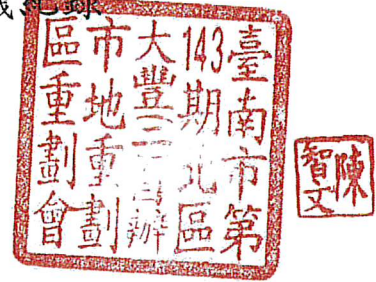 紀錄
臺南市第
143期北區
大豐三自辦
市地重劃
區重劃會
陳
智文